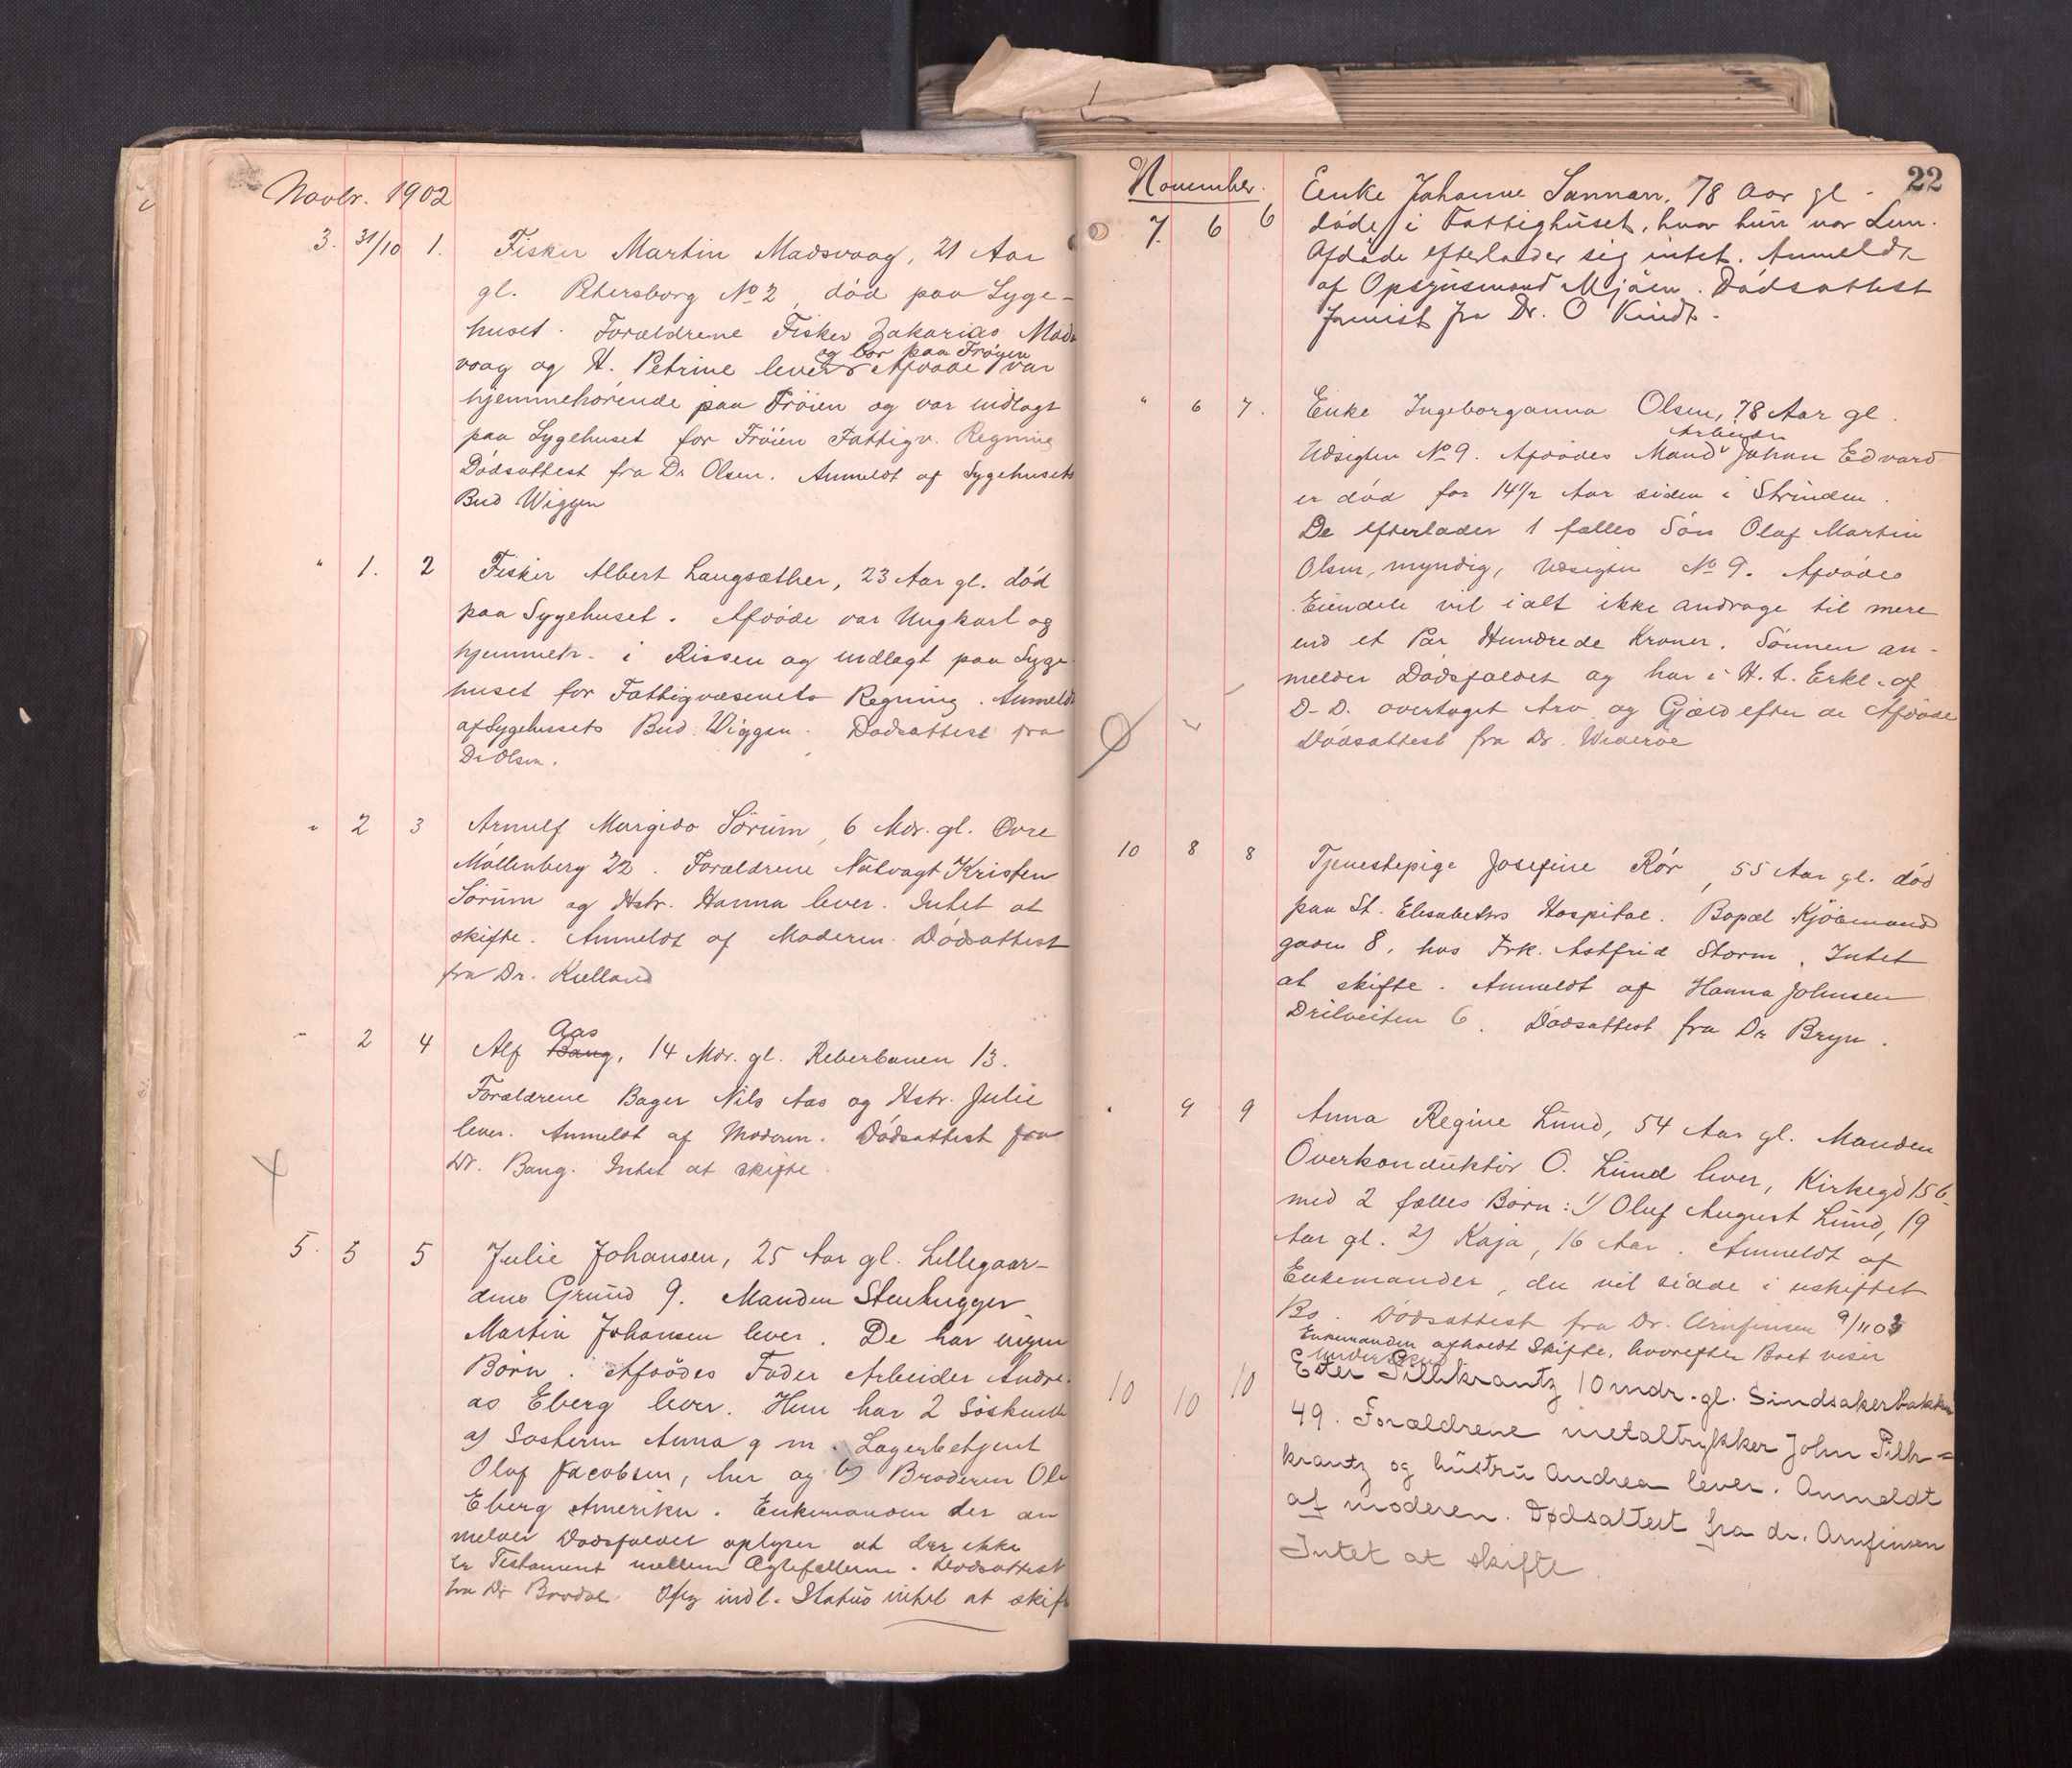 Novbr. 1902
3. 31/10 1. Fisker Martin Madsvaag, 21 Aar
gl. Petersborg No 2, død paa Syge-
huset. Forældrene Fisker Zakarias Mads
vaag og H. Petrine lever og bor paa Frøyen Afdøde var
hjemmehørende paa Frøien og var indlagt
paa Sygehuset for Frøien Fattigv. Regning
Dødsattest fra Dr Olsen. Anmeldt af Sygehusets
Bud Wiggen
" 1. 2 Fisker Albert Langsæther, 23 Aar gl. død
paa Sygehuset. Afdøde var Ungkarl og
hjemmeh. i Rissen og indlagt paa Syge-
huset for Fattigvæsenets Regning. Anmeldt
af Sygehusets Bud Wiggen. Dødsattest fra
Dr Olsen.
" 2 3 Arnulf Margido Sörum, 6 Mdr. gl. Øvre
Møllenberg 22. Forældrene Natvagt Kristen
Sørum og Hstr. Hanna lever. Intet at
skifte. Anmeldt af Moderen. Dødsattest
fra Dr. Kielland
" 2 4 Alf Bang Aas, 14 Mdr. gl. Reberbanen 13.
Forældrene Bager Nils Aas og Hstr. Julie
lever. Anmeldt af Moderen. Dødsattest fra
Dr. Bang. Intet at skifte
5. 5 5 Julie Johansen, 25 Aar gl. Lillegaar-
dens Grund 9. Manden Stenhugger
Martin Johansen lever. De har ingen
Børn. Afdødes Fader Arbeider Andre-
as Eberg lever. Hun har 2 Søskende
a) Søsteren Anna g m. Lagerbetjent
Olaf Jacobsen, her og b) Broderen Ole
Eberg Amerika. Enkemanden der an
melder Dødsfaldet oplyser at der ikke
er Testament mellem Ægtefællerne. Dødsattest
fra Dr Brodal. Iføg indl. Status intet at skifte
22
November.
7. 6 6 Enke Johanne Sannan, 78 Aar gl.
døde i Fattighuset, hvor hun var Lem.
Afdøde efterlader sig intet. Anmeldt
af Opsynsmand Mjøen. Dødsattest
fra Dr. O Kindt.
" 6 7. Enke Ingeborganna Olsen, 78 Aar gl.
Udsigten No 9. Afdødes Mand Arbeider Johan Edvard
er død for 14 1/2 Aar siden i Strinden.
De efterlader 1 fælles Søn Olaf Martin
Olsen, myndig, Udsigten No 9. Afdødes
Eiendele vil i alt ikke andrage til mere
end et Par Hundrede Kroner. Sønnen an-
melder Dødsfaldet og har i H. t. Erkl. af
D. D. overtaget Arv og Gjæld efter de Afdøde
Dødsattest fra Dr. Widerøe
10 8 8 Tjenestepige Josefine Rør, 55 Aar gl. død
paa St. Elisabeths Hospital. Bopæl Kjøbmand
gaden 8, hos Frk. Astfrid Storm. Intet
at skifte. Anmeldt af Hanna Johnsen
Drilveiten 6. Dødsattest fra Dr Bryn.
" 9 9 Anna Regine Lund, 54 Aar gl. Manden
Overkonduktør O. Lund lever, Kirkegd 15 b
med 2 fælles Børn: 1) Oluf August Lund, 19
Aar gl. 2) Kaja, 16 Aar. Anmeldt af
Enkemanden, der vil sidde i uskiftet
Bo. Dødsattest fra Dr. Arnfinsen 9/11 03
Enkemanden afholdt Skifte, hvorefter Boet viser
Underskud
10 10 10 Ester Pillkrantz 10 mdr. gl. Sindsakerbakken
49. Forældrene metaltrykker John Pill-
krantz og hüstru Andrea lever. Anmeldt
af moderen. Dødsattest fra dr. Arnfinsen
Intet at skifte